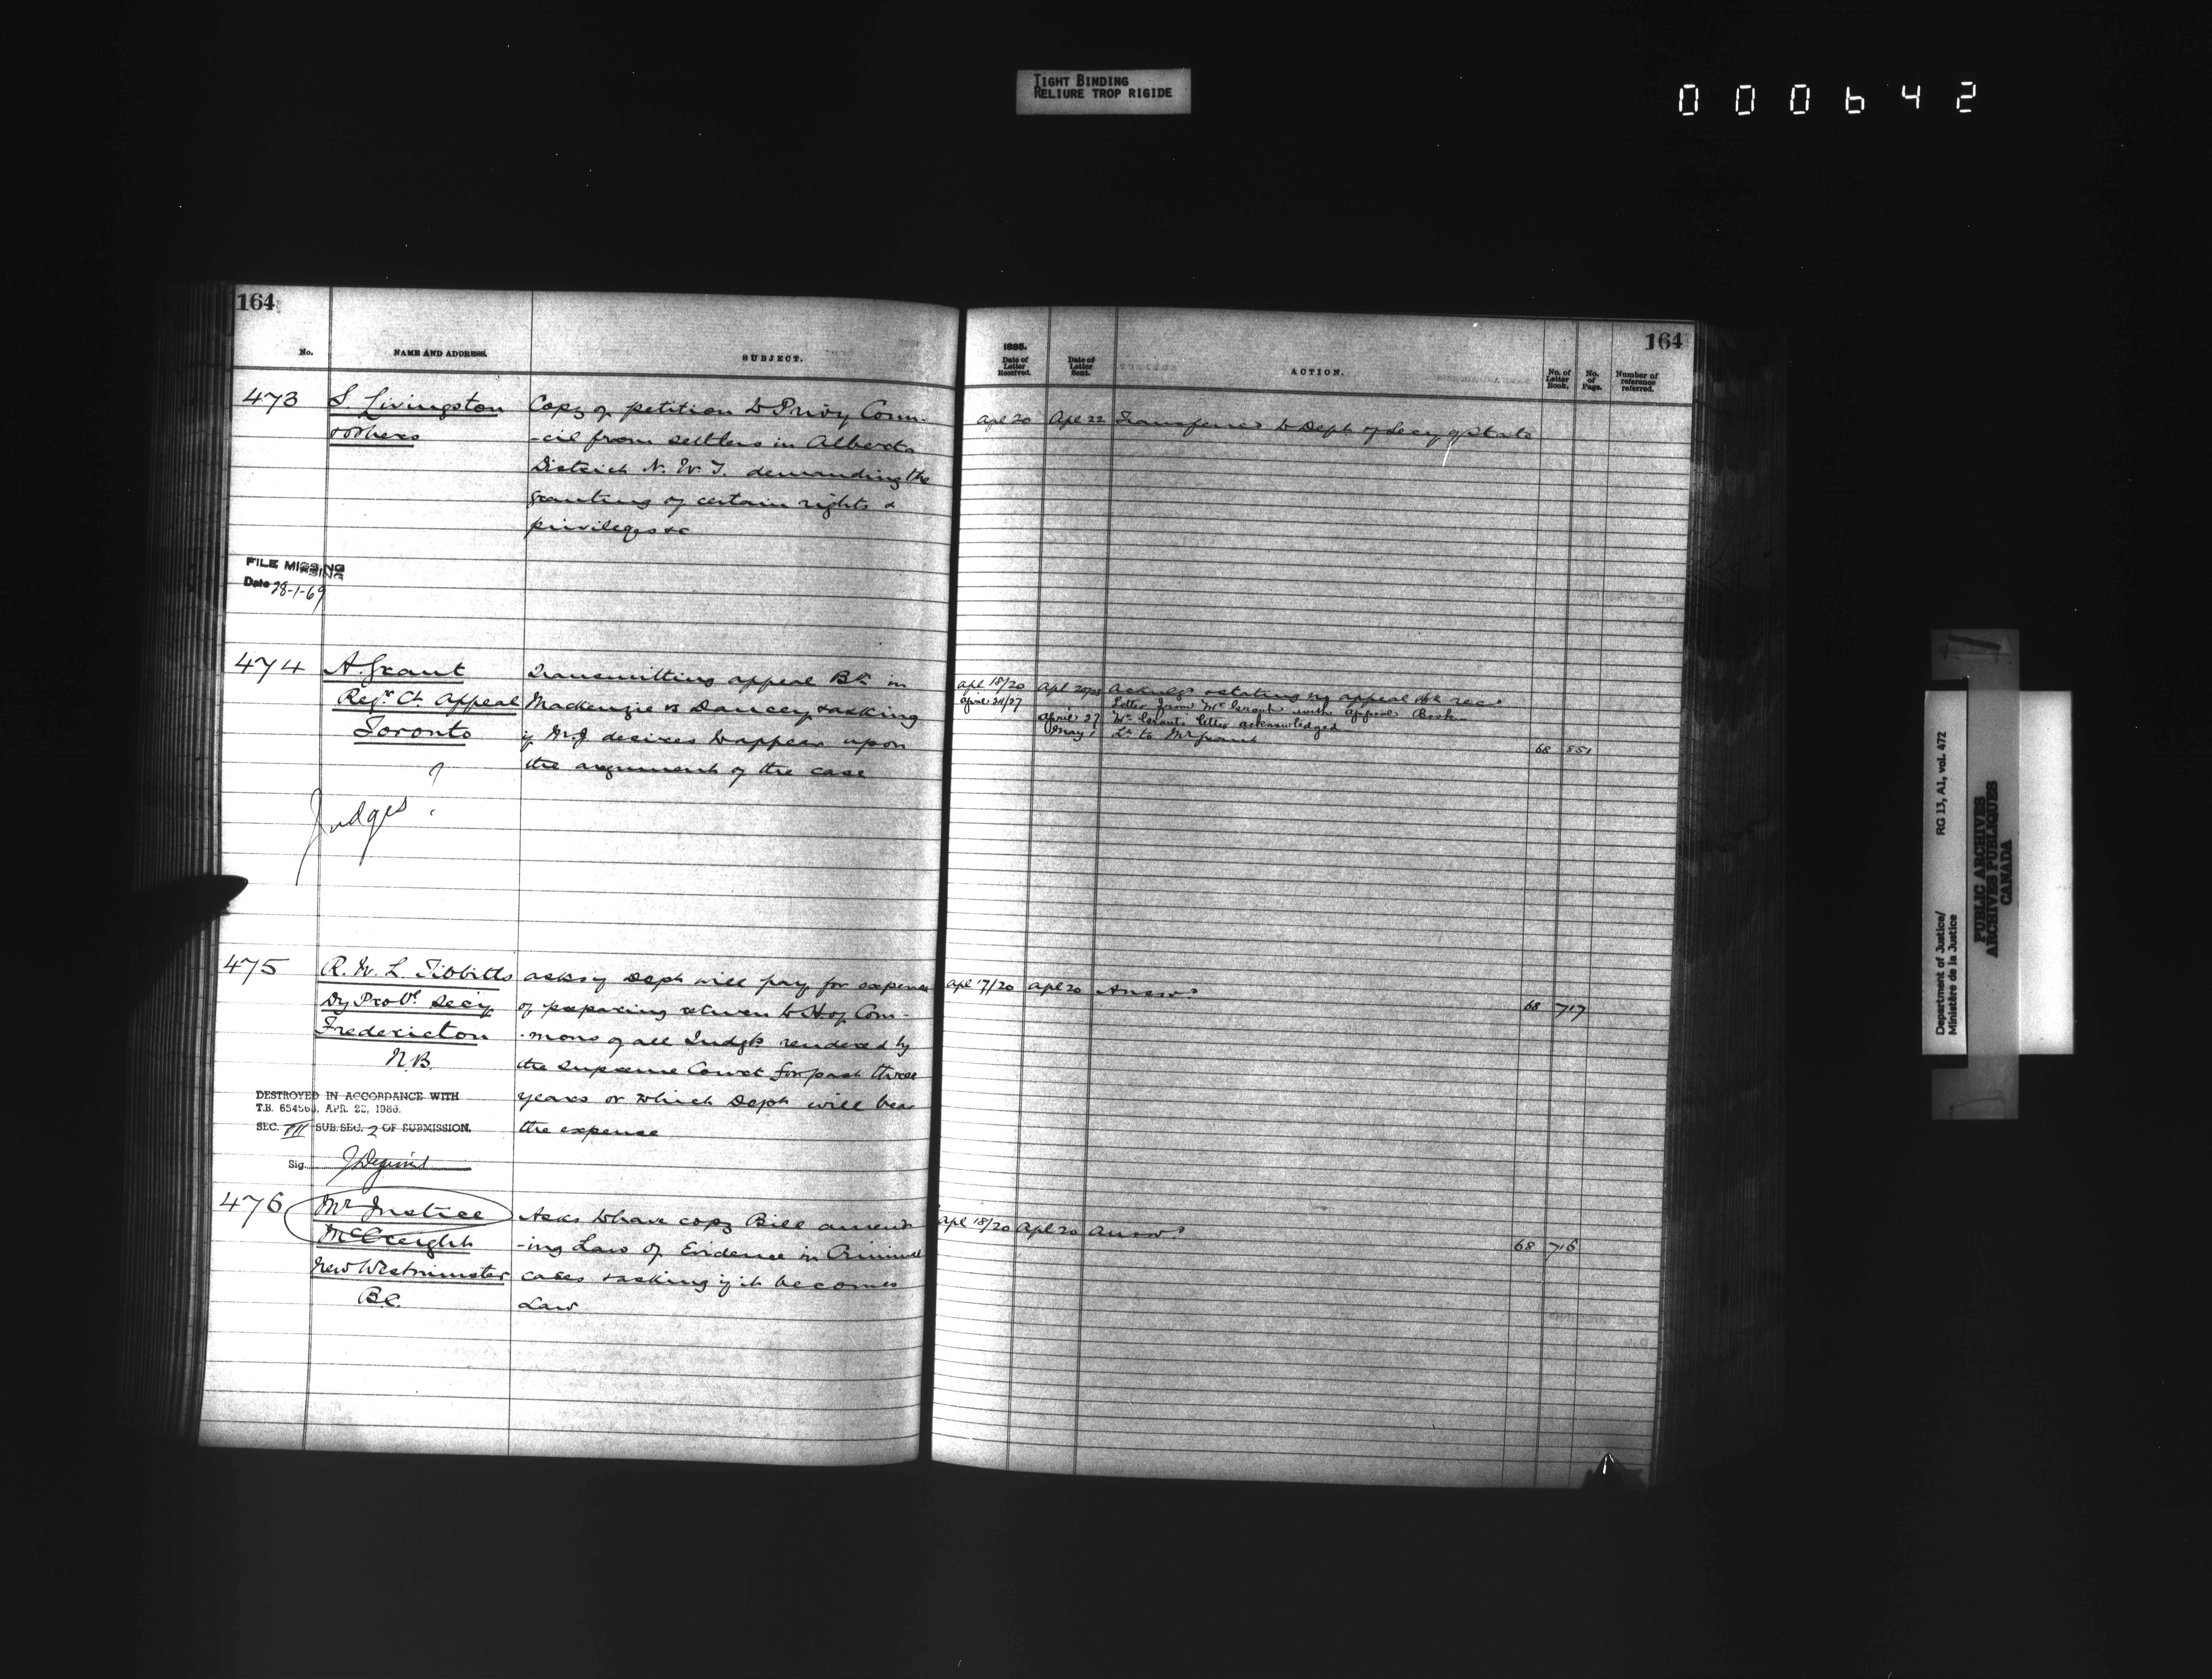 TIGHT BINDING
RELIURE TROP RIGIDE
000642
164
No.
NAME AND ADDRESS.
SUBJECT.
473
S Livingston
& others
Copy of petition to Privy Coun-
-cil from settlers in Alberta
District N. W. T. demanding the
granting of certain rights &
privileges &c
FILE MISSING
Date 28-1-69
474
A. Grant
Regr Ct Appeal
Toronto
Transmitting appeal Bk in
Mackenzie vs Dancey & asking
if M.J desires to appear upon
the argument of the case
Judges ?
475
R. W. L. Tibbitts
Dy Provl Secy
Fredericton
N.B.
asks if Dept will pay for expense
of preparing return to H. of Com-
-mons of all Judgts rendered by
the Supreme Court for past three
years or which Dept will bear
the expense
DESTROYED IN ACCORDANCE WITH
T.B. APR. 1986.
SEC. III SUB.SEC. 2 OF SUBMISSION.
Sig.
476
Mr Justice
McCreight
New Westminster
B.C.
Asks to have copy Bill amend
-ing Law of Evidence in Criminal
cases & asking if it becomes
Law
164
1885.
Date of Letter Received.
Date of Letter Sent.
ACTION.
No. of Letter Book.
No. of Page.
Number of reference referred.
Apl 20 Apl 22 Transferred to Dept of Secy of State
Apl 18/20 Apl Acknlg & stating no appeal Bk recd
April 24/27 Letter from Mr Grant with Appeal Book
April 27 Mr Grants letter acknowledged
May 1 Lr to Mr Grant 68 851
Apl 17/20 Apl 20 Answd 68 717
Apl 18/20 Apl 20 Answd 68 716
Department of Justice/
Ministère de la Justice
RG 13, A1, vol. 472
PUBLIC ARCHIVES
ARCHIVES PUBLIQUES
CANADA